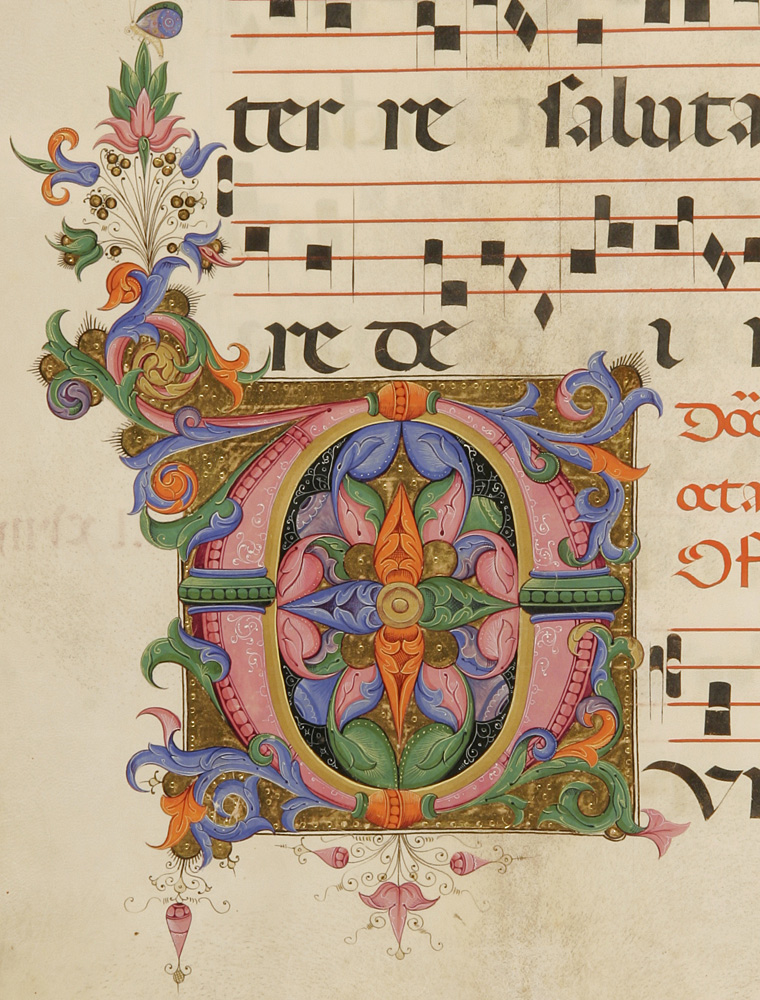 ter re saluta
re de i
octa
Of
O